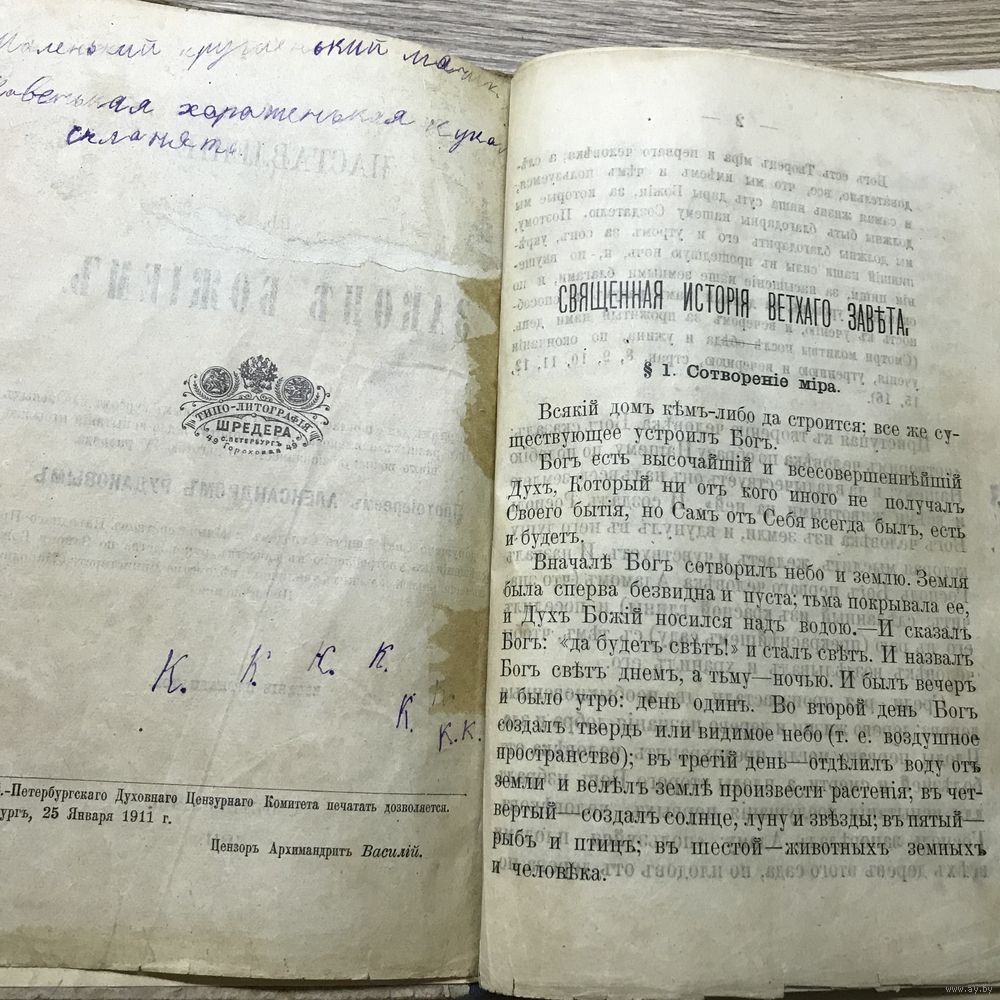 Маленький кругленький мальчик.
хорошенькая
склонять.
ТИПО-ЛИТОГРАФІЯ
ШРЕДЕРА
С.ПЕТЕРБУРГЪ
49 Гороховая 49
К. К. К. К.
К. К.
К.К.
.-Петербургскаго Духовнаго Цензурнаго Комитета печатать дозволяется.
ургъ, 25 Января 1911 г.
Цензоръ Архимандритъ Василій.
СВЯЩЕННАЯ ИСТОРІЯ ВЕТХАГО ЗАВѢТА.
§ 1. Сотвореніе міра.
Всякій домъ кѣмъ-либо да строится: все же су-
ществующее устроилъ Богъ.
Богъ есть высочайшій и всесовершеннѣйшій
Духъ, Который ни отъ кого иного не получалъ
Своего бытія, но Самъ отъ Себя всегда былъ, есть
и будетъ.
Вначалѣ Богъ сотворилъ небо и землю. Земля
была сперва безвидна и пуста; тьма покрывала ее,
и Духъ Божій носился надъ водою.—И сказалъ
Богъ: «да будетъ свѣтъ!» и сталъ свѣтъ. И назвалъ
Богъ свѣтъ днемъ, а тьму—ночью. И былъ вечеръ
и было утро: день одинъ. Во второй день Богъ
создалъ твердь или видимое небо (т. е. воздушное
пространство); въ третій день—отдѣлилъ воду отъ
земли и велѣлъ землѣ произвести растенія; въ чет-
вертый—создалъ солнце, луну и звѣзды; въ пятый—
рыбъ и птицъ; въ шестой—животныхъ земныхъ
и человѣка.
www.ay.by